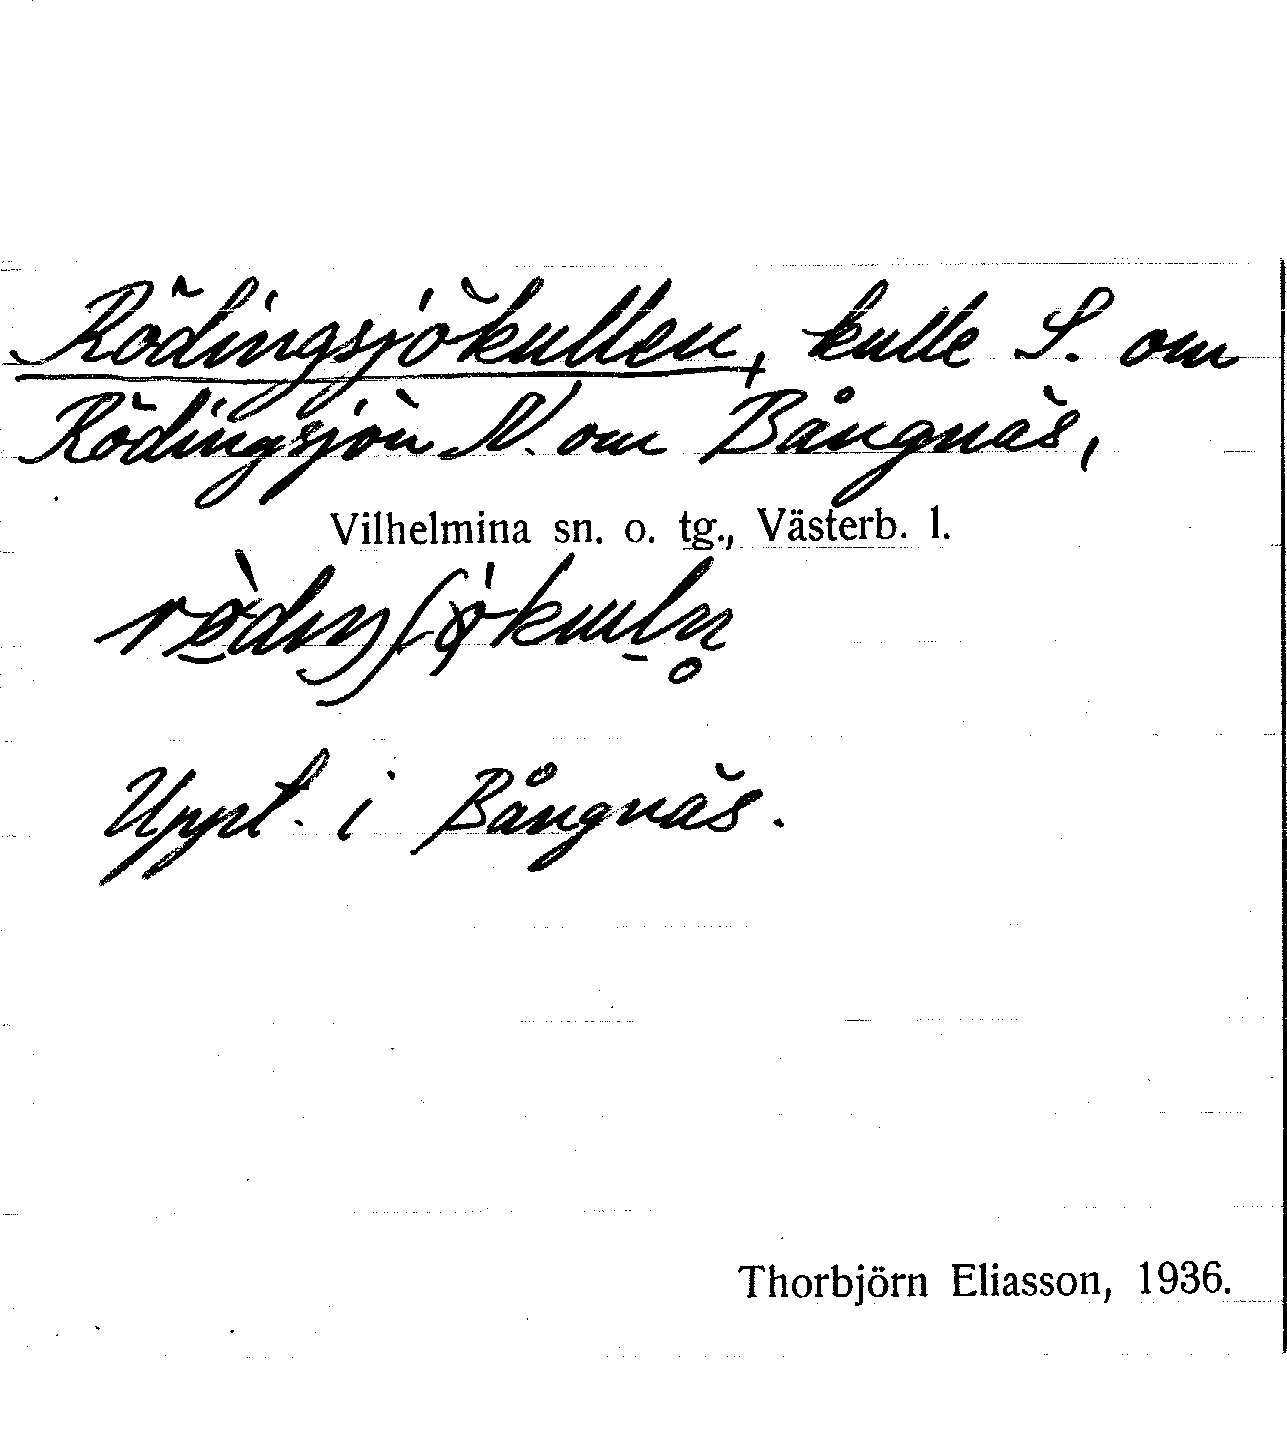 Rödingsjökullen, kulle S. om
Rödingsjön N. om Bångnäs,
Vilhelmina sn. o. tg., Västerb. l.
Uppt. i Bångnäs.
Thorbjörn Eliasson, 1936.